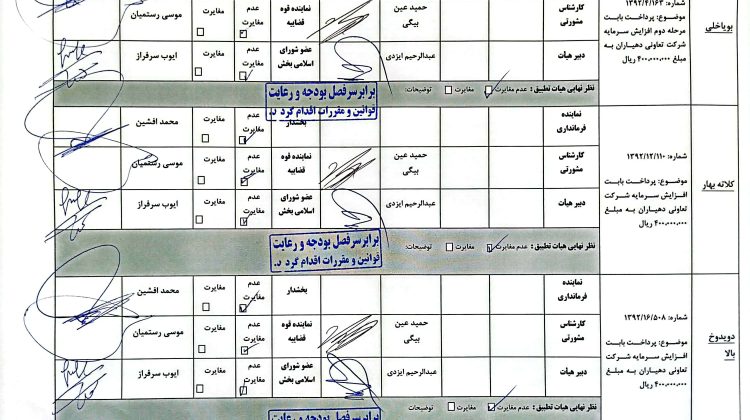 بویاخلی
شماره: ۱۳۹۲/۴/۱۶۳
موضوع: پرداخت بابت
مرحله دوم افزایش سرمایه
شرکت تعاونی دهیاران به
مبلغ ۴۰۰,۰۰۰,۰۰۰ ریال
کارشناس مشورتی
حمید عین بیگی
نماینده قوه قضاییه
عدم مغایرت
مغایرت
موسی رستمیان
دبیر هیأت
عبدالرحیم ایزدی
عضو شورای اسلامی بخش
عدم مغایرت
مغایرت
ایوب سرفراز
نظر نهایی هیات تطبیق: عدم مغایرت مغایرت توضیحات:
برابر سرفصل بودجه و رعایت
قوانین و مقررات اقدام گردد.
کلاته بهار
شماره: ۱۳۹۲/۱۲/۱۱۰
موضوع: پرداخت بابت
افزایش سرمایه شرکت
تعاونی دهیاران به مبلغ
۴۰۰,۰۰۰,۰۰۰ ریال
نماینده فرمانداری
بخشدار
عدم مغایرت
مغایرت
محمد افشین
کارشناس مشورتی
حمید عین بیگی
نماینده قوه قضاییه
عدم مغایرت
مغایرت
موسی رستمیان
دبیر هیأت
عبدالرحیم ایزدی
عضو شورای اسلامی بخش
عدم مغایرت
مغایرت
ایوب سرفراز
نظر نهایی هیات تطبیق: عدم مغایرت مغایرت توضیحات:
برابر سرفصل بودجه و رعایت
قوانین و مقررات اقدام گردد.
دویدوخ بالا
شماره: ۱۳۹۲/۱۶/۵۰۸
موضوع: پرداخت بابت
افزایش سرمایه شرکت
تعاونی دهیاران به مبلغ
۴۰۰,۰۰۰,۰۰۰ ریال
نماینده فرمانداری
بخشدار
عدم مغایرت
مغایرت
محمد افشین
کارشناس مشورتی
حمید عین بیگی
نماینده قوه قضاییه
عدم مغایرت
مغایرت
موسی رستمیان
دبیر هیأت
عبدالرحیم ایزدی
عضو شورای اسلامی بخش
عدم مغایرت
مغایرت
ایوب سرفراز
نظر نهایی هیات تطبیق: عدم مغایرت مغایرت توضیحات:
برابر سرفصل بودجه و رعایت